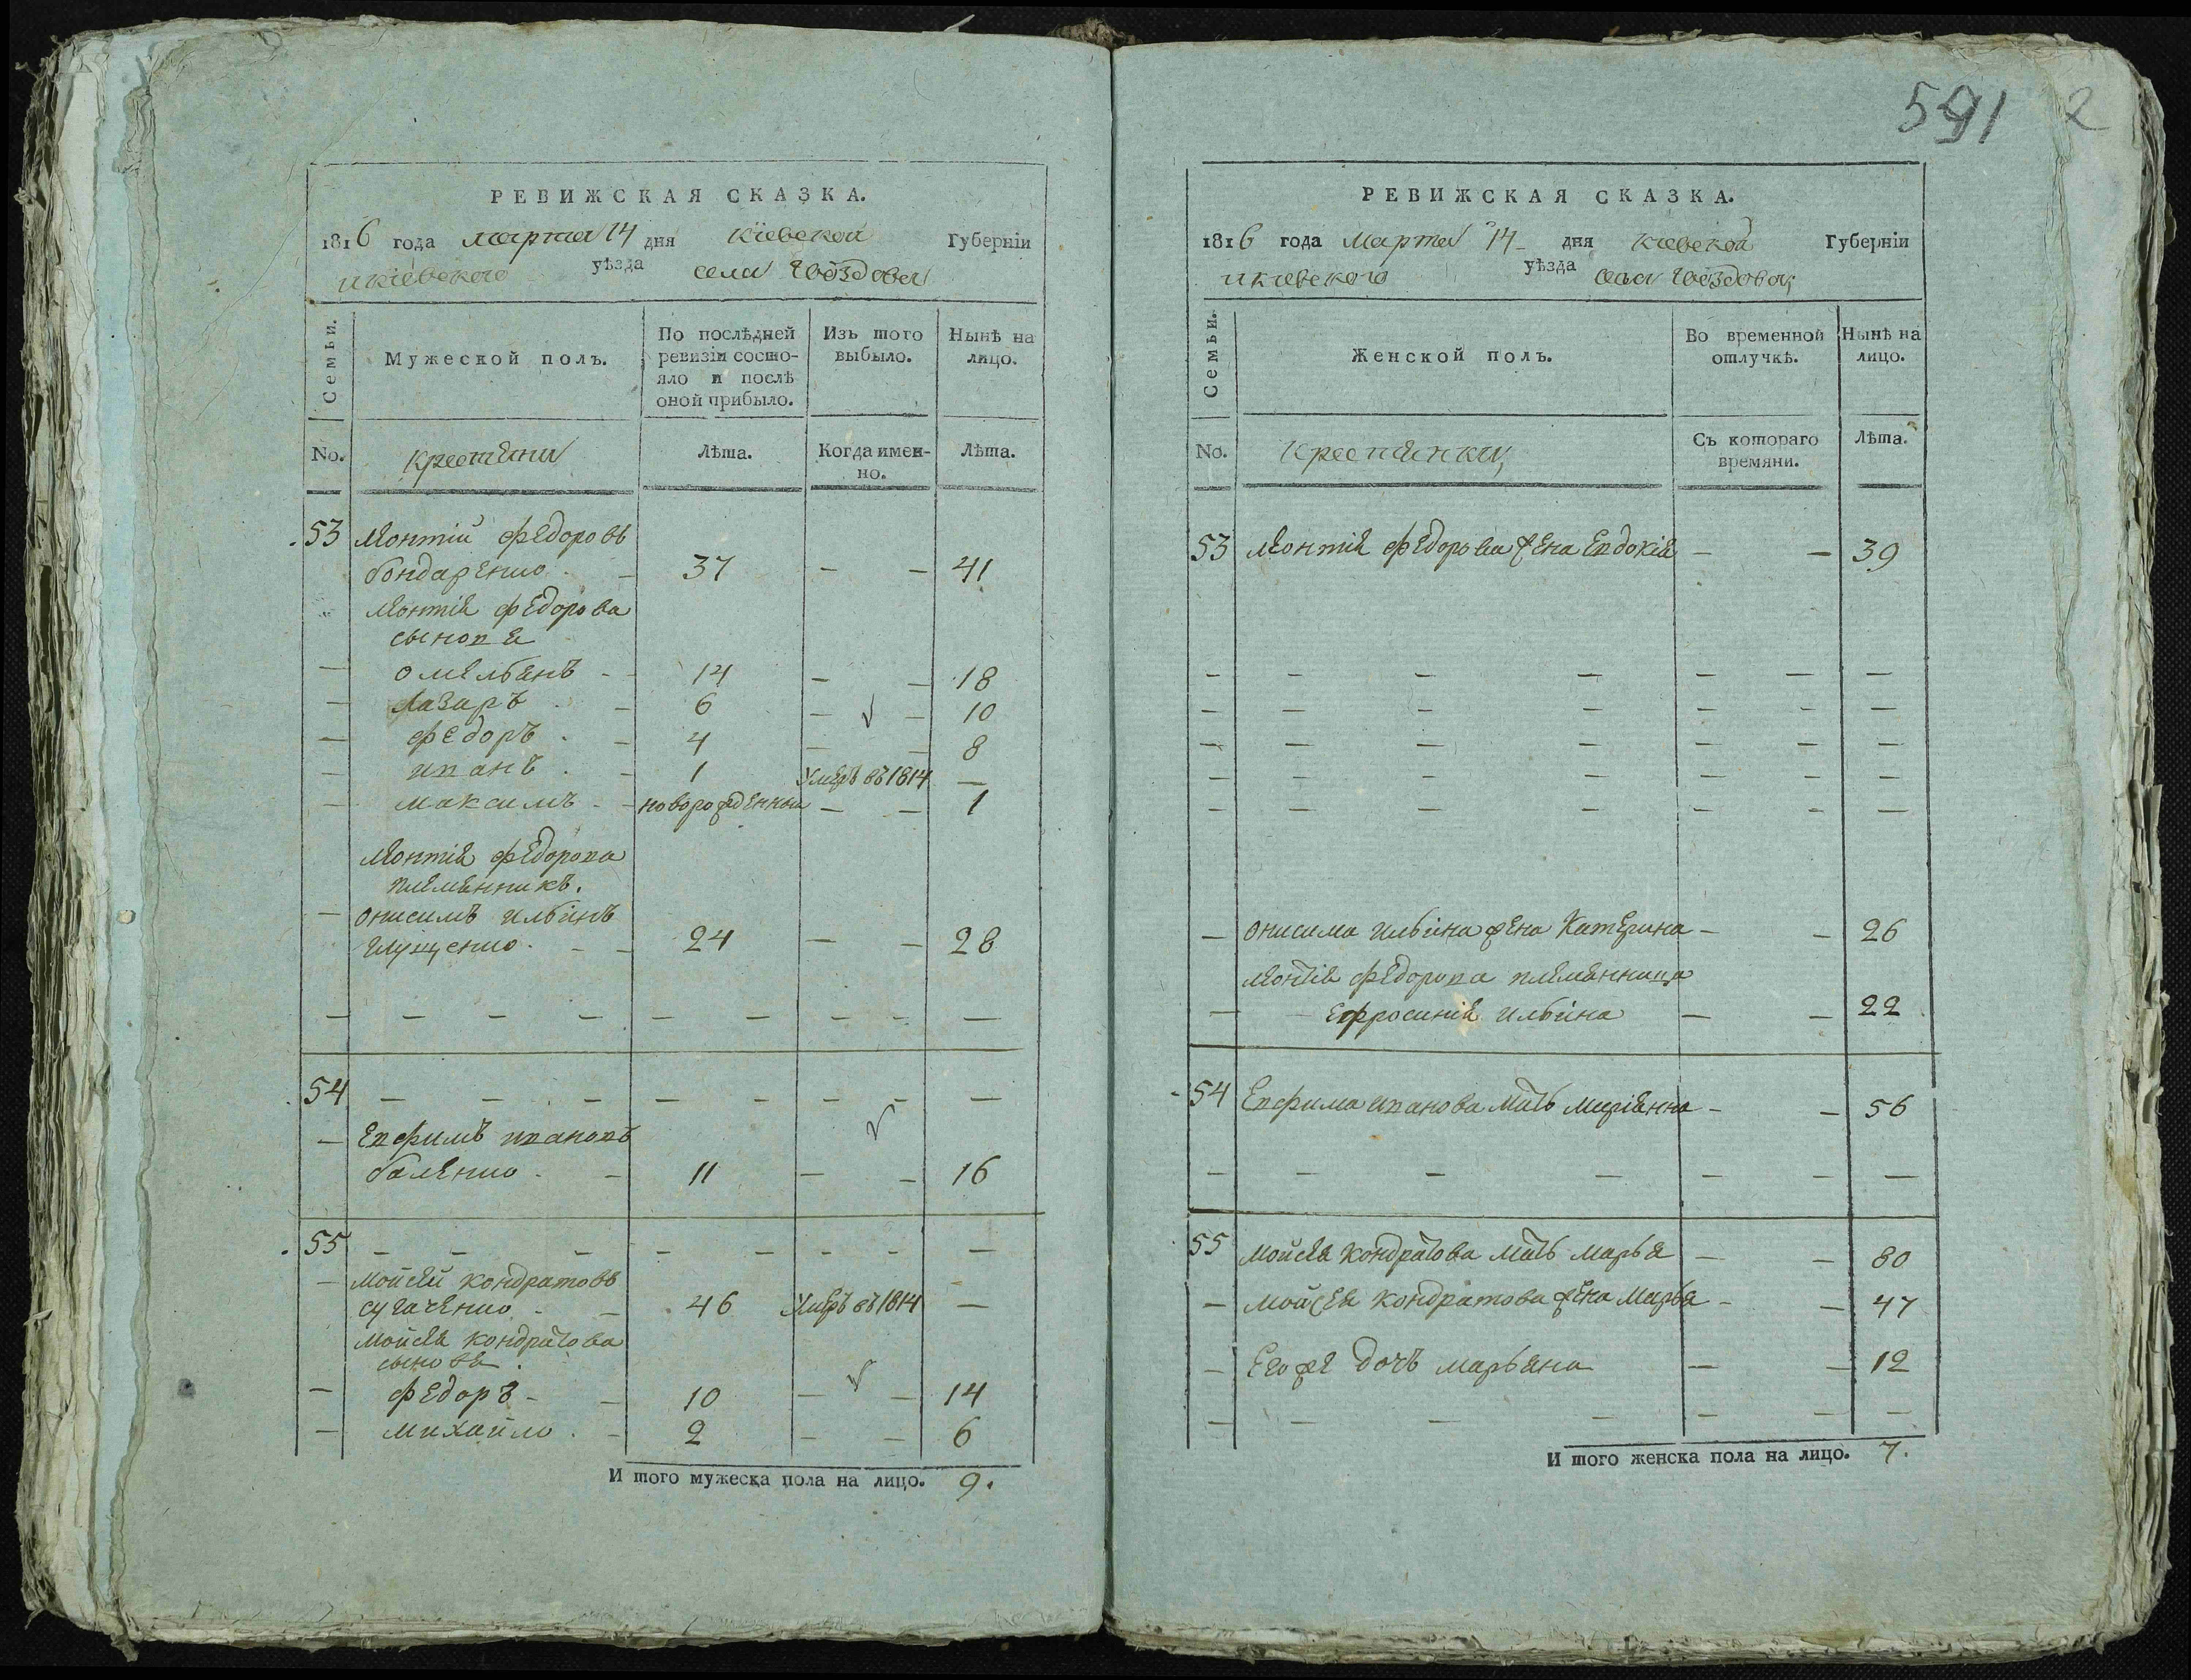 591 2
РЕВИЖСКАЯ СКАЗКА.
1816 года марта 14 дня Кіевской Губерніи
и кіевского уѣзда села Гвоздова
Семьи.
Мужеской полъ.
По послѣдней ревизіи состояло и послѣ оной прибыло.
Изъ того выбыло.
Нынѣ на лицо.
No. Крестяни Лѣта. Когда именно. Лѣта.
53 Леонтій Федоровъ
бондаренко - 37 - - 41
Леонтія Федорова
сыновя
- омелянъ - - 14 - - 18
- Лазаръ - 6 - - 10
- Федоръ - 4 - - 8
- иванъ - 1 Умеръ въ 1814 -
- максимъ - новорожденный - - 1
Леонтія Федорова
племянникъ.
- онисимъ ильинъ
глущенко - - 24 - - 28
- - - - - - - - - -
54 - - - - - - - -
- Евфимъ ивановъ
баленко - 11 - - 16
55 - - - - - - - -
- мойсей кондратовъ
сугаченко - 46 Умеръ въ 1814 -
мойсея кондратова
сыновя
- Федоръ - - 10 - - 14
- михайло - 2 - - 6
И того мужеска пола на лицо. 9.
РЕВИЖСКАЯ СКАЗКА.
1816 года Марта 14 дня Кіевской Губерніи
и кіевского уѣзда села Гвоздова
Семьи.
Женской полъ.
Во временной отлучкѣ.
Нынѣ на лицо.
No. Крестянки Съ котораго времяни. Лѣта.
53 Леонтія Федорова жена Евдокія - - 39
- - - - - - -
- - - - - - -
- - - - - - -
- - - - - - -
- - - - - - -
- онисима ильина жена Катерина - - 26
Леонтія Федорова племянница
- Ефросинія ильина - - 22
54 Евфима иванова мать маріянна - - 56
- - - - - - -
55 мойсея кондратова мать марья - - 80
- мойсея кондратова жена Марья - - 47
- Его же дочь марьяна - - 12
- - - - - - -
И того женска пола на лицо. 7.